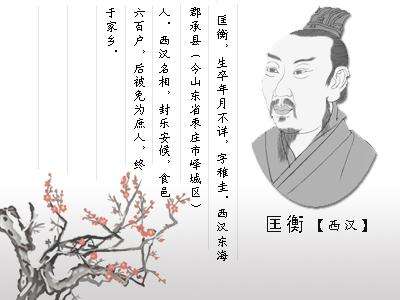 匡衡，生卒年月不详，字稚圭。西汉东海
郡承县（今山东省枣庄市峄城区）
人。西汉名相，封乐安侯，食邑
六百户，后被免为庶人，终
于家乡。
匡衡【西汉】